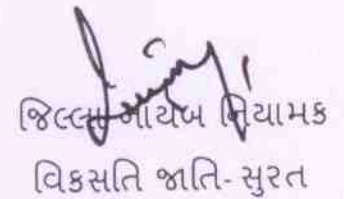 જિલ્લા નાયબ નિયામક
વિકસતિ જાતિ- સુરત